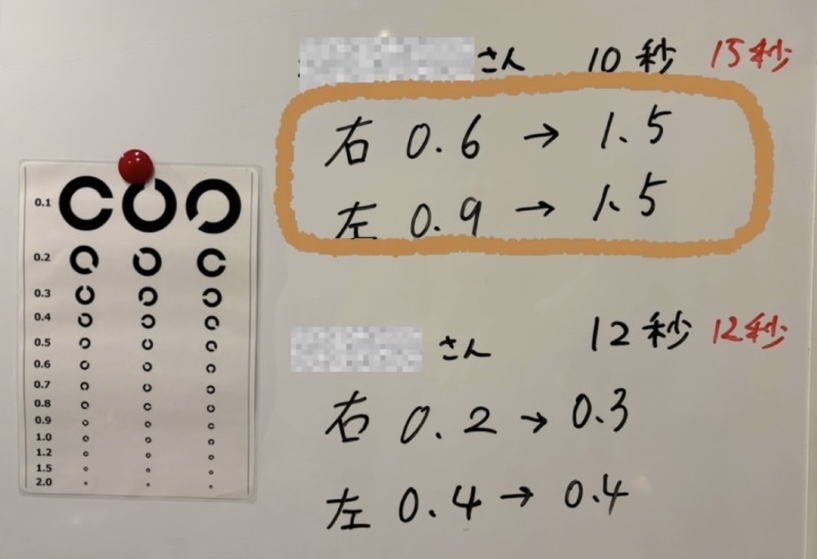 さん 10秒 15秒
右 0.6 → 1.5
左 0.9 → 1.5
さん 12秒 12秒
右 0.2 → 0.3
左 0.4 → 0.4
0.1
0.2
0.3
0.4
0.5
0.6
0.7
0.8
0.9
1.0
1.2
1.5
2.0